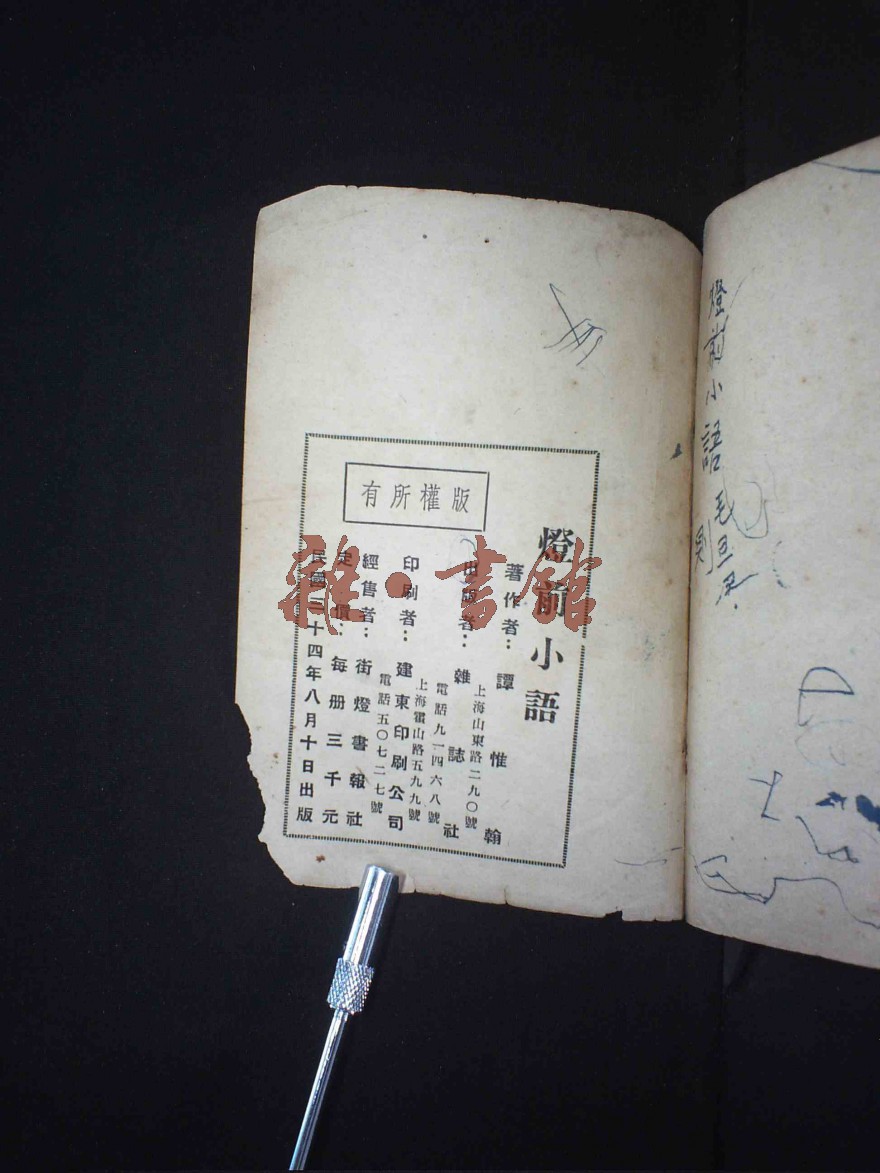 版權所有
燈前小語
著作者：譚惟翰
出版者：雜誌社
上海山東路二九〇號
電話九一四六八號
印刷者：建東印刷公司
上海霍山路五九九號
電話五〇七二七號
經售者：街燈書報社
定價：每册三千元
民國三十四年八月十日出版
雜·書館
燈前小語